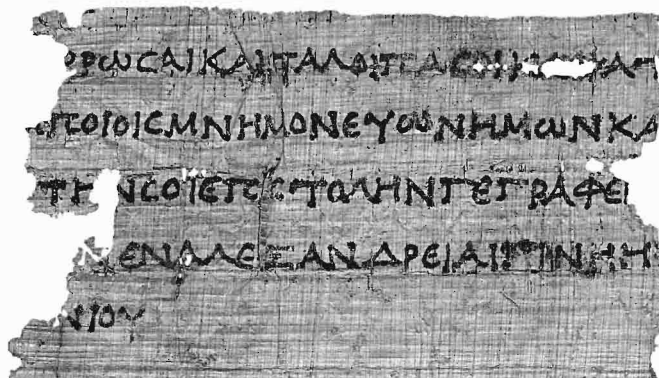 ΡΡΩCΑΙΚΑΙΤΑΛΟΙΠΑ
ΠΟΙΟΙCΜΝΗΜΟΝΕΥΟΥΝΗΜΩΝΚΑ
ΤΗΝCΟΙΕΠΙCΤΟΛΗΝΓΕΓΡΑΦΕΙ
ΝΕΝΑΛΕΞΑΝΔΡΕΙΑΙ
ΝΙΟΥ